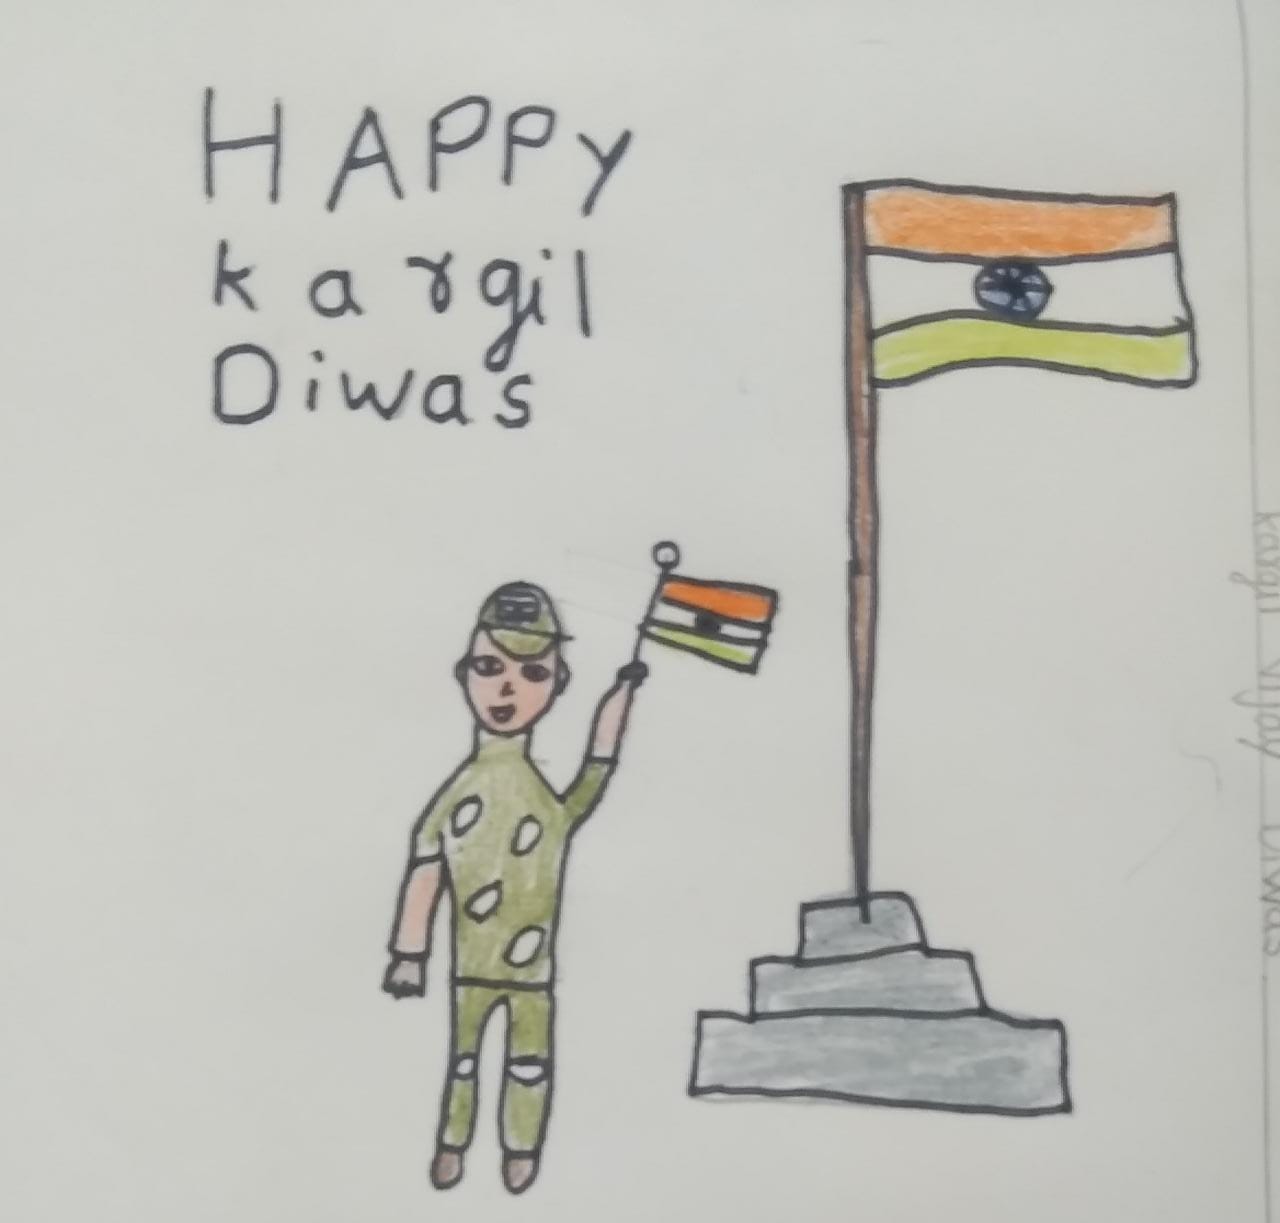 HAPPY
kargil
Diwas
kargil vijay Diwas